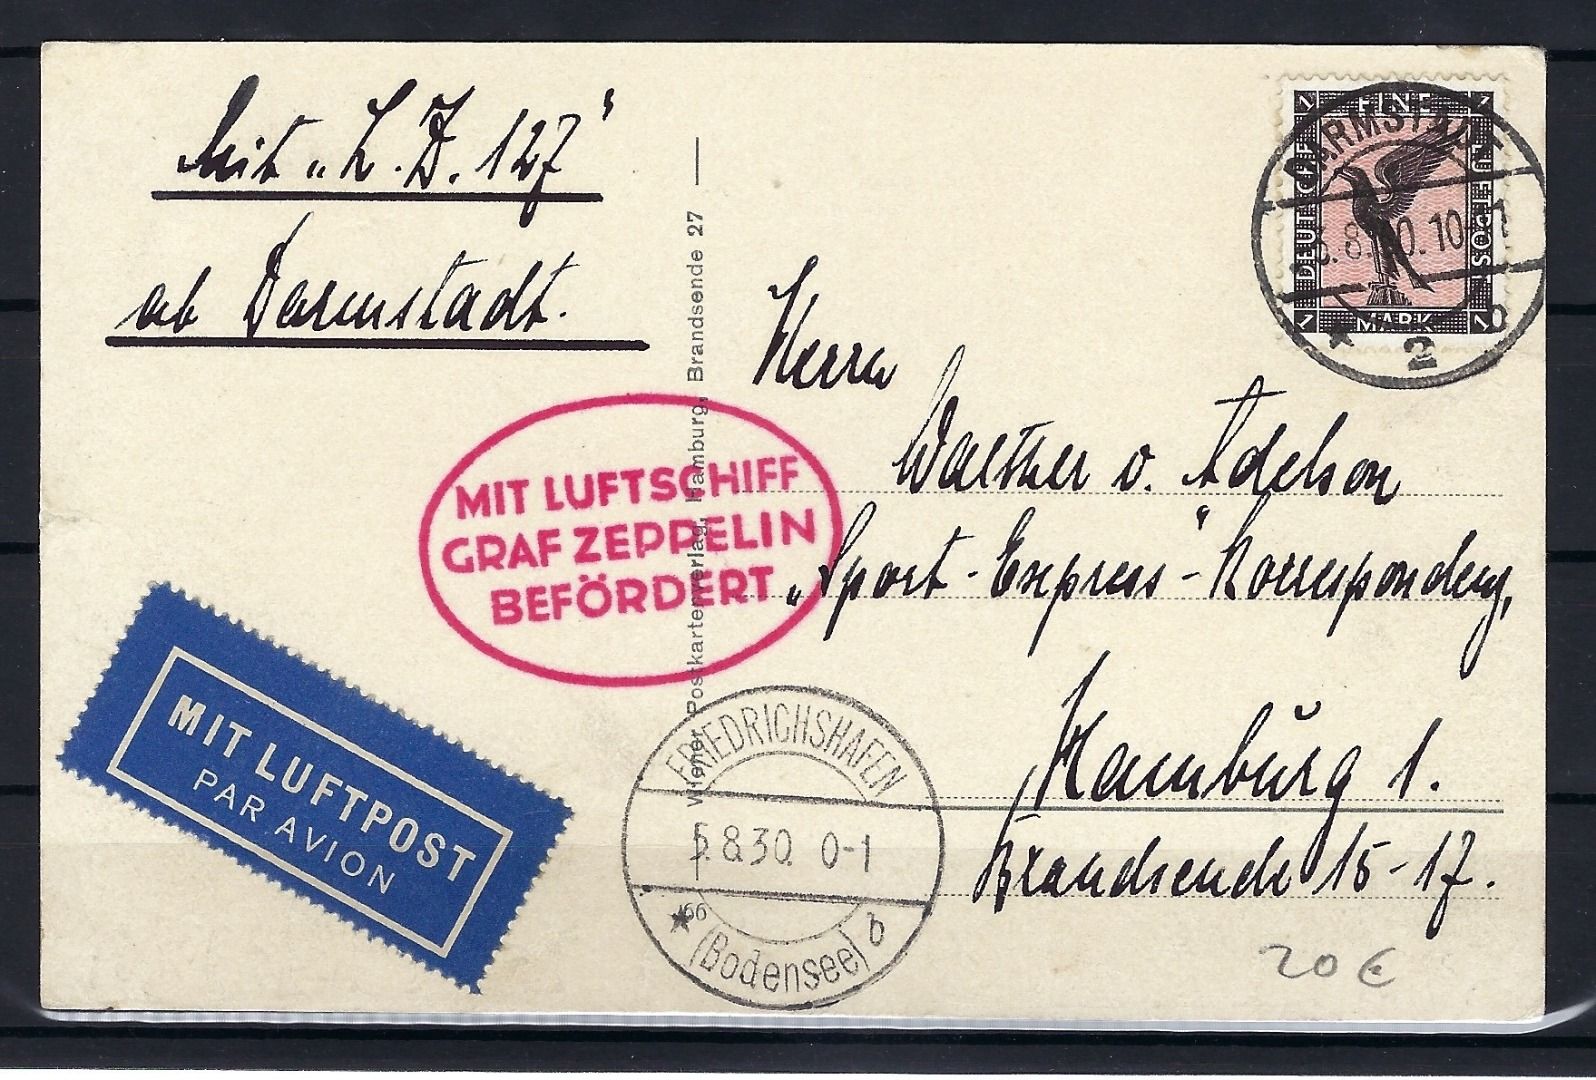 Mit „L.Z. 127"
ab Darmstadt.
EINE
DEUTSCHE
LUFTPOST
MARK
1
1
1
1
DARMSTADT
8.30.10
* 2 b
Herrn
Walther v. Adelson
„Sport-Express"-Korrespondenz,
Hamburg 1.
Brandsende 15-17.
MIT LUFTSCHIFF
GRAF ZEPPELIN
BEFÖRDERT
Wiener Postkartenverlag, Hamburg, Brandsende 27
MIT LUFTPOST
PAR AVION
FRIEDRICHSHAFEN
5.8.30. 0-1
* (Bodensee) b
166
20 €